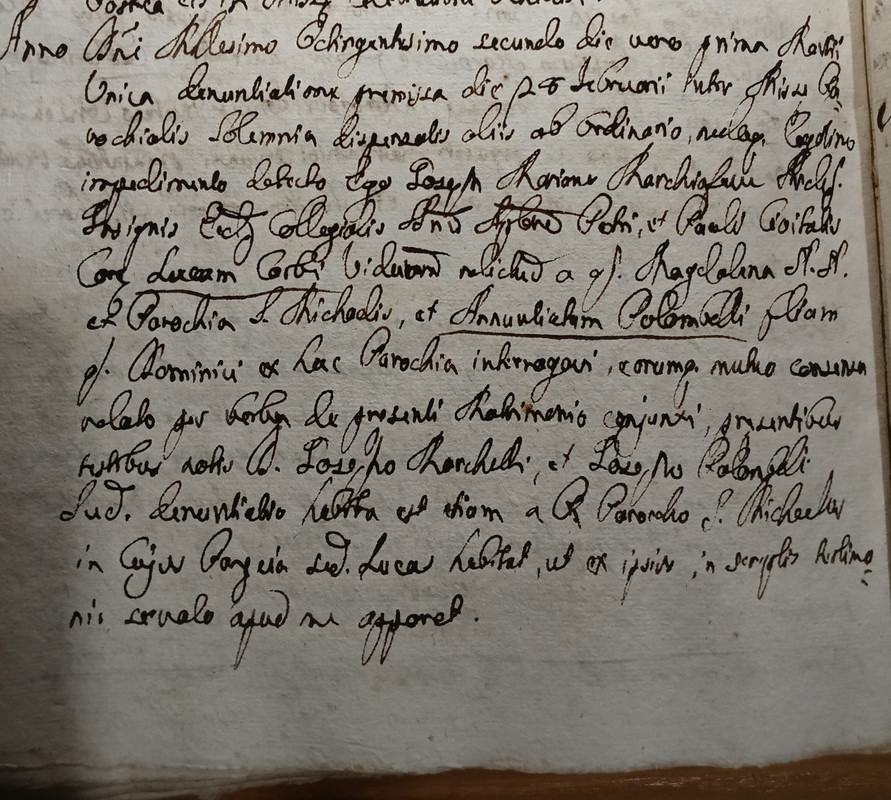 postea eis in
Anno Dñi Millesimo Octingentesimo secundo die vero prima Martii
Unica denuntiatione premissa die 28 Februarii inter Missæ Pa-
rochialis Solemnia dispensatis aliis ab Ordinario, nulloq. Legitimo
impedimento detecto Ego Joseph Marchigiani Archip.
Insignis Eccl. Collegialis Petri, et Pauli Civitatis
Lucam Corbi Viduum relictum a q. Magdalena N. N.
et Parochia S. Michaelis, et Annuntiatam Polombelli filiam
q. Dominici ex hac Parochia interrogavi, eorumq. mutuo consensu
per verba de presenti Matrimonio conjunxi, presentibus
testibus notis D. Josepho Marchetti, et Josepho Palombelli
Sud. denuntiatio habita est etiam a R. Parocho S. Michaelis
in Cujus Parœcia sud. Lucas habitat, ut ex ipsius in scriptis testimo-
nii servato apud me apparet.